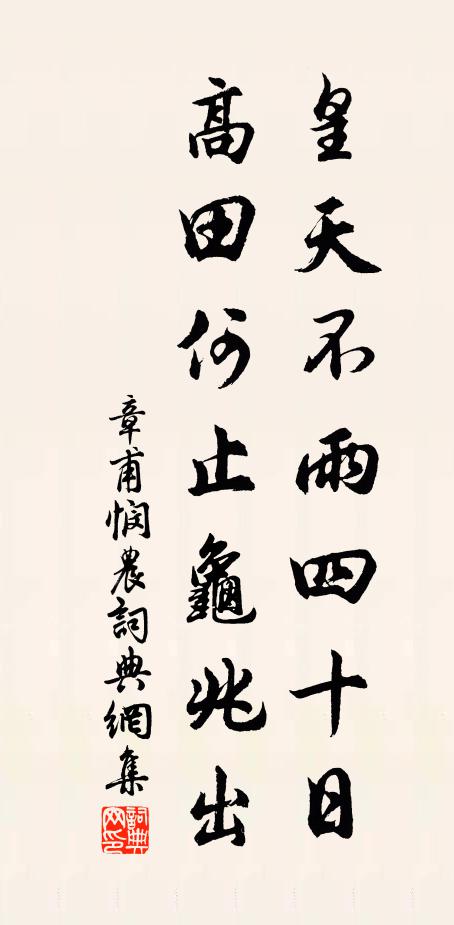 皇天不雨四十日
高田何止龜兆出
章甫憫農詞典網集
詞典網印